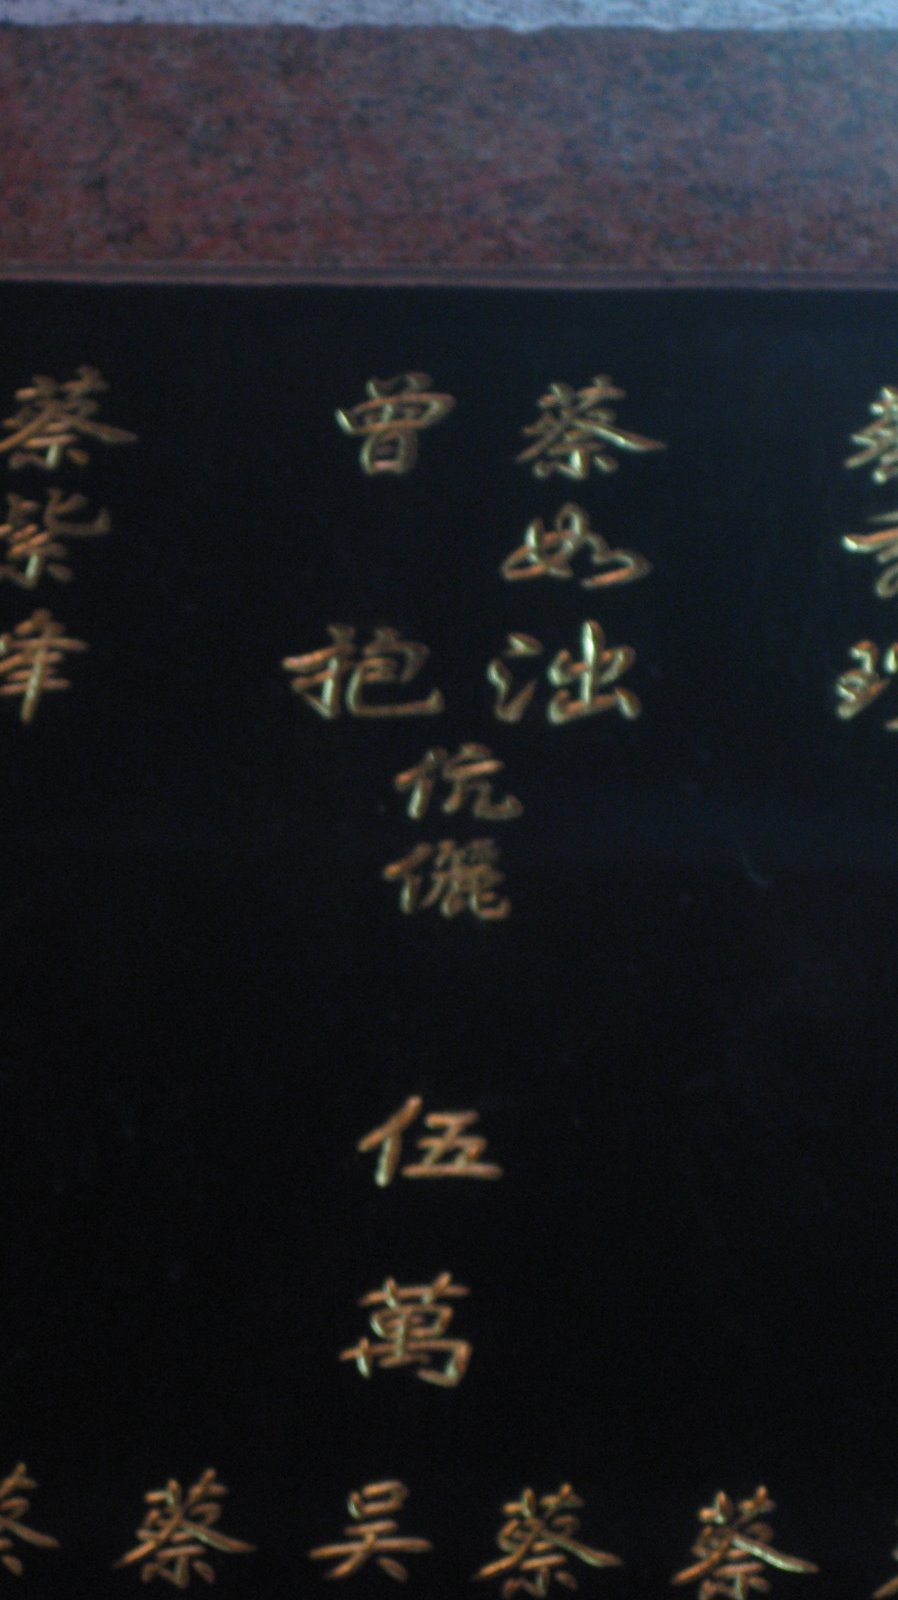 蔡如泏
曾抱
伉儷
伍萬
蔡紫峰
蔡
蔡
吴
蔡
蔡